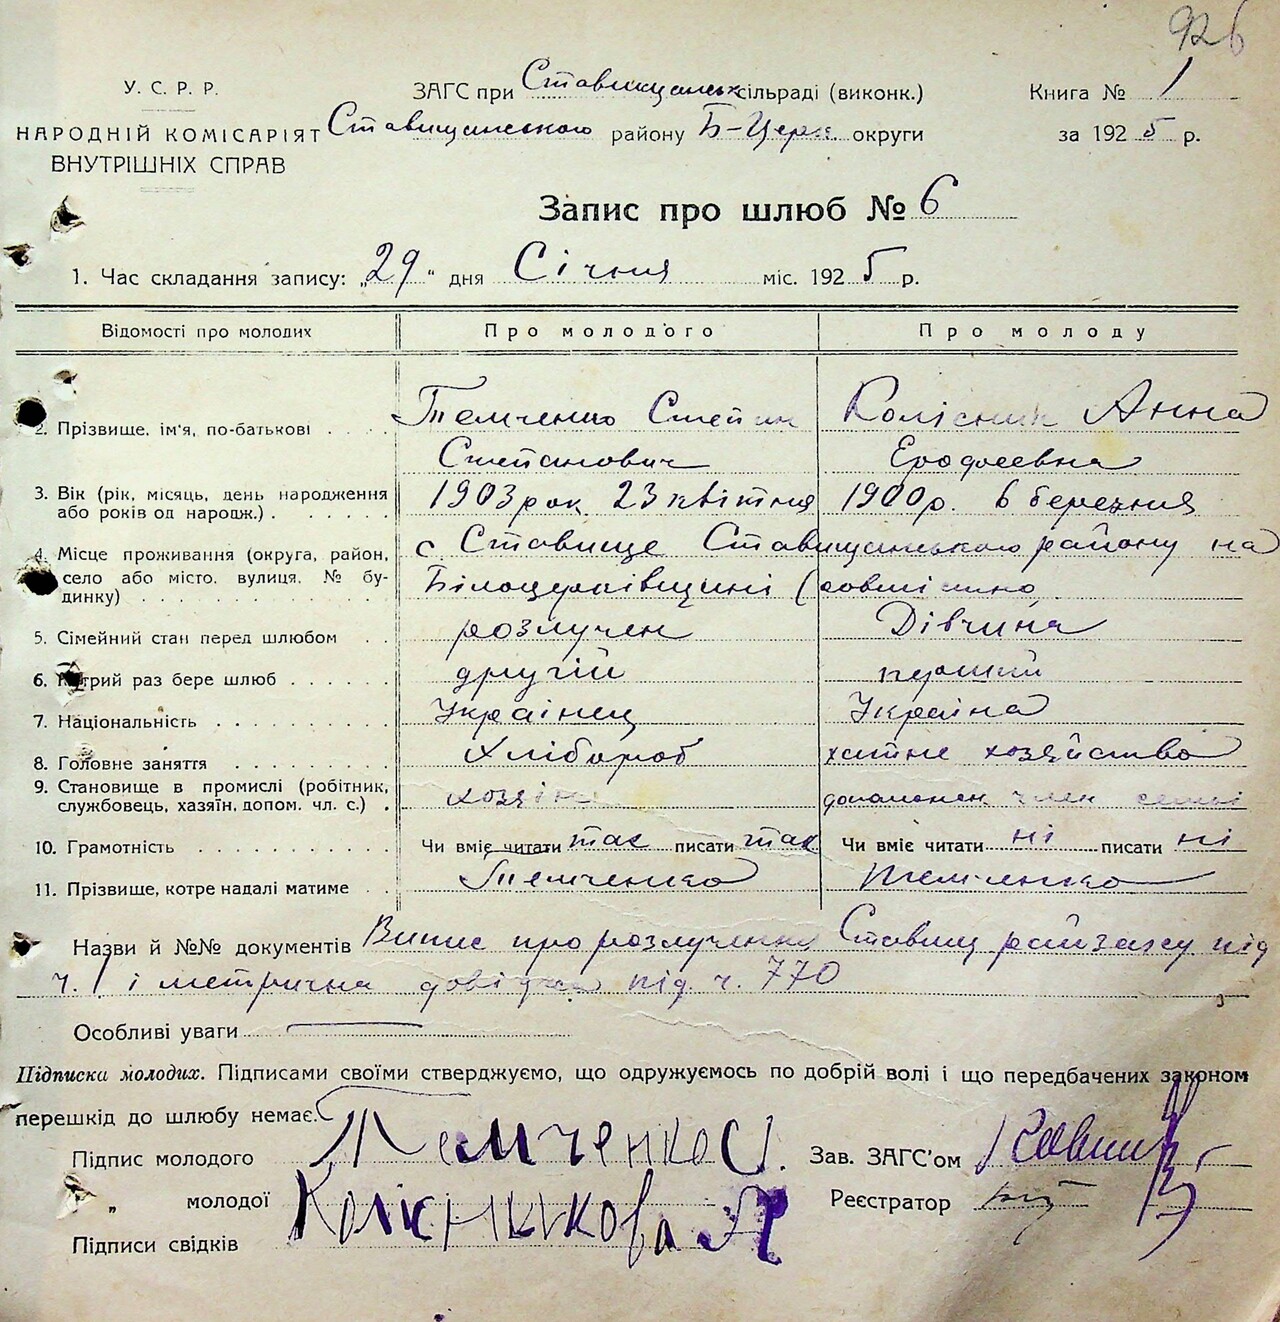 926
У. С. Р. Р.
НАРОДНІЙ КОМІСАРІЯТ
ВНУТРІШНІХ СПРАВ
ЗАГС при Ставищанськ сільраді (виконк.)
Ставищанського району Б-Церк. округи
Книга № 1
за 1925 р.
Запис про шлюб № 6
1. Час складання запису: „29“ дня Січня міс. 1925 р.
Відомості про молодих Про молодого Про молоду
2. Прізвище, ім'я, по-батькові . . . . Темченко Степан Колісник Анна
Степанович Ерофеевна
3. Вік (рік, місяць, день народження 1903 рок. 23 квітня 1900 р. 6 березня
або років од народж.) . . . . . .
4. Місце проживання (округа, район, с. Ставище Ставищанського району на
село або місто, вулиця, № бу- Білоцерківщині (совмісно
динку) . . . . . . . . . . .
5. Сімейний стан перед шлюбом . . розлучен Дівчина
6. Котрий раз бере шлюб . . . . . . другій перший
7. Національність . . . . . . . . . Українец Україна
8. Головне заняття . . . . . . . . Хлібороб хатне хозяйство
9. Становище в промислі (робітник, хозяін
службовець, хазяїн, допом. чл. с.) . член семьі
10. Грамотність . . . . . . . . . . Чи вміє читати так писати так Чи вміє читати ні писати ні
11. Прізвище, котре надалі матиме . . Темченко Темченко
Назви й №№ документів Випис про розлучення Ставищ райзагсу під
ч. 1 і метрична довідка під. ч. 770
Особливі уваги
Підписка молодих. Підписами своїми стверджуємо, що одружуємось по добрій волі і що передбачених законом
перешкід до шлюбу немає.
Підпис молодого Темченко С. Зав. ЗАГС'ом
„ молодої Колісникова А Реєстратор
Підписи свідків